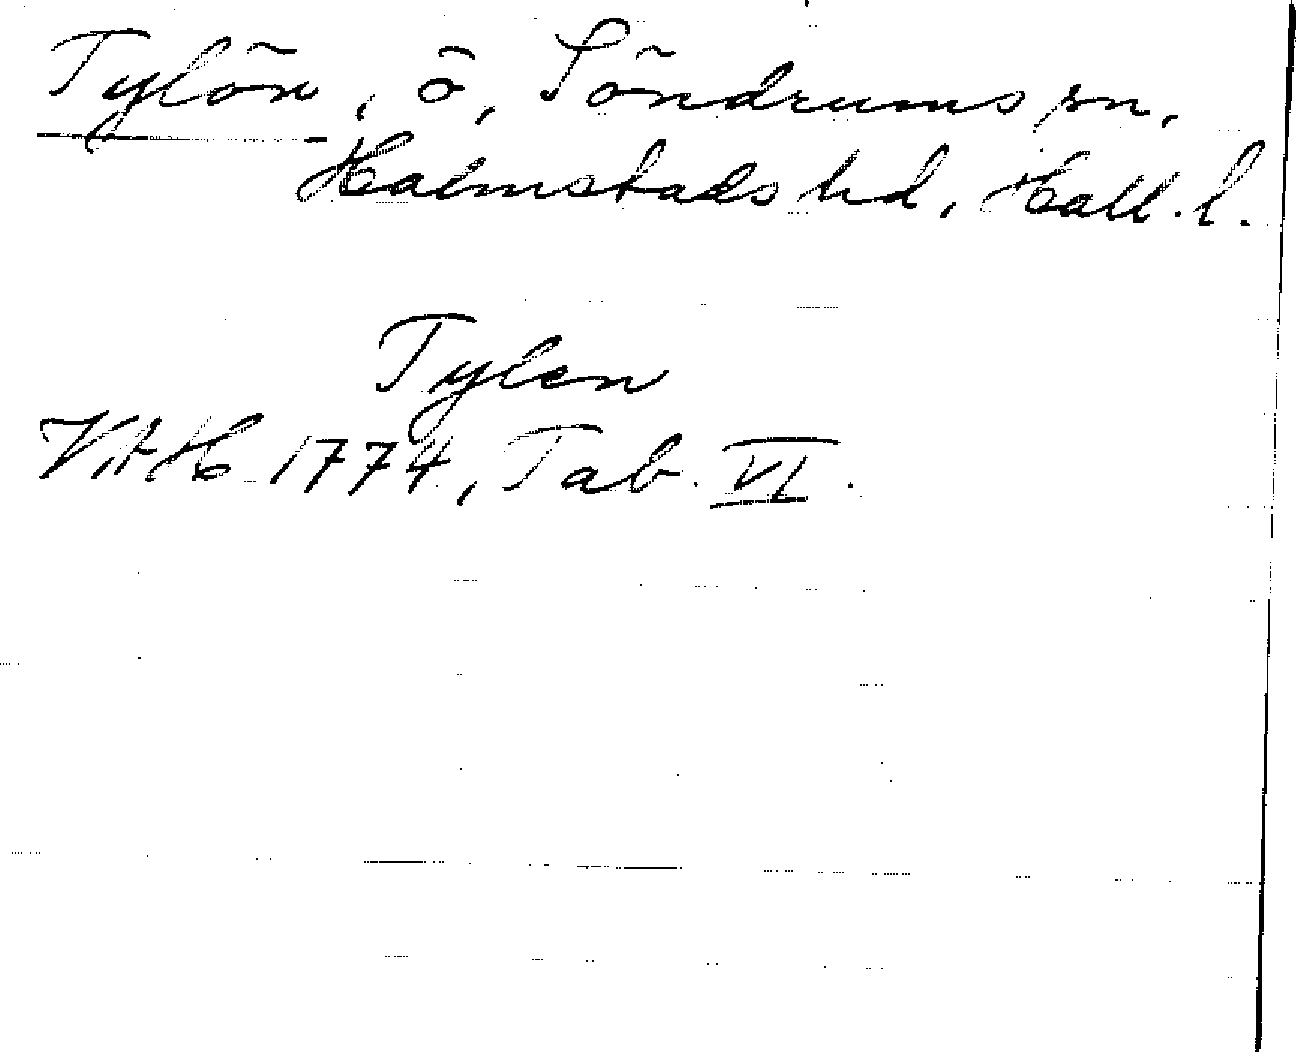 Tylön, ö, Söndrums sn,
Halmstads hd, Hall. l.
Tylen
VAH 1774, Tab. VI.